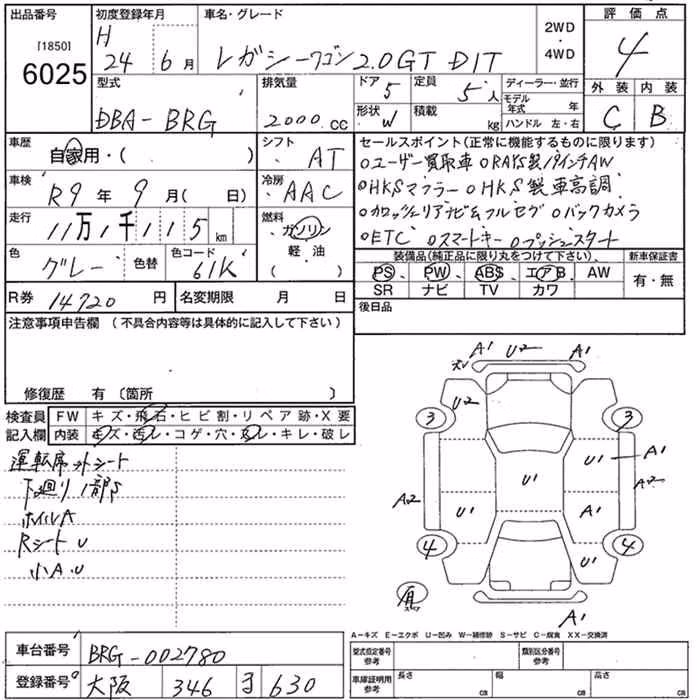 出品番号 初度登録年月 車名・グレード 2WD・4WD 評価点
[1850] 6025 H 24 6月 レガシーワゴン 2.0GT DIT 4
型式 排気量 ドア 5 定員 5人 ディーラー・並行 外装 内装
DBA-BRG 2000cc 形状 W 積載 kg モデル年式 年 C B
ハンドル 左・右
車歴 自家用・( ) シフト AT セールスポイント(正常に機能するものに限ります)
oユーザー買取車 oRAYS製19インチAW
車検 R9年9月( 日) 冷房 AAC oHKSマフラー oHKS製車高調
走行 11万1千115km 燃料 ガソリン 軽・油 ( ) oカロッツェリアナビ&フルセグ oバックカメラ
oETC oスマートキー oプッシュスタート
色 グレー 色替 色コード 61K 装備品(純正品に限り丸をつけて下さい) 新車保証書
PS、PW、ABS、エアB、AW 有・無
SR ナビ TV カワ
R券 14720円 名変期限 月 日 後日品
注意事項申告欄 (不具合内容等は具体的に記入して下さい)
修復歴 有 (箇所 )
検査員 FW キズ・飛石・ヒビ割・リペア跡・X要
記入欄 内装 キズ・汚レ・コゲ・穴・スレ・キレ・破レ
A1 U2 A1
U2
3 3
U1 A1
A2 U1 A2
U1 A1
4 4
U1
A1
運転席 シート
下廻り1部S
ホイルA
RシートU
小A.U
A-キズ E-エクボ U-凹み W-補修跡 S-サビ C-腐食 XX-交換済
車台番号 BRG-002780 型式指定番号 参考 類別区分番号 参考
登録番号 大阪 346 630 車庫証明用 参考 長さ cm 幅 cm 高さ cm